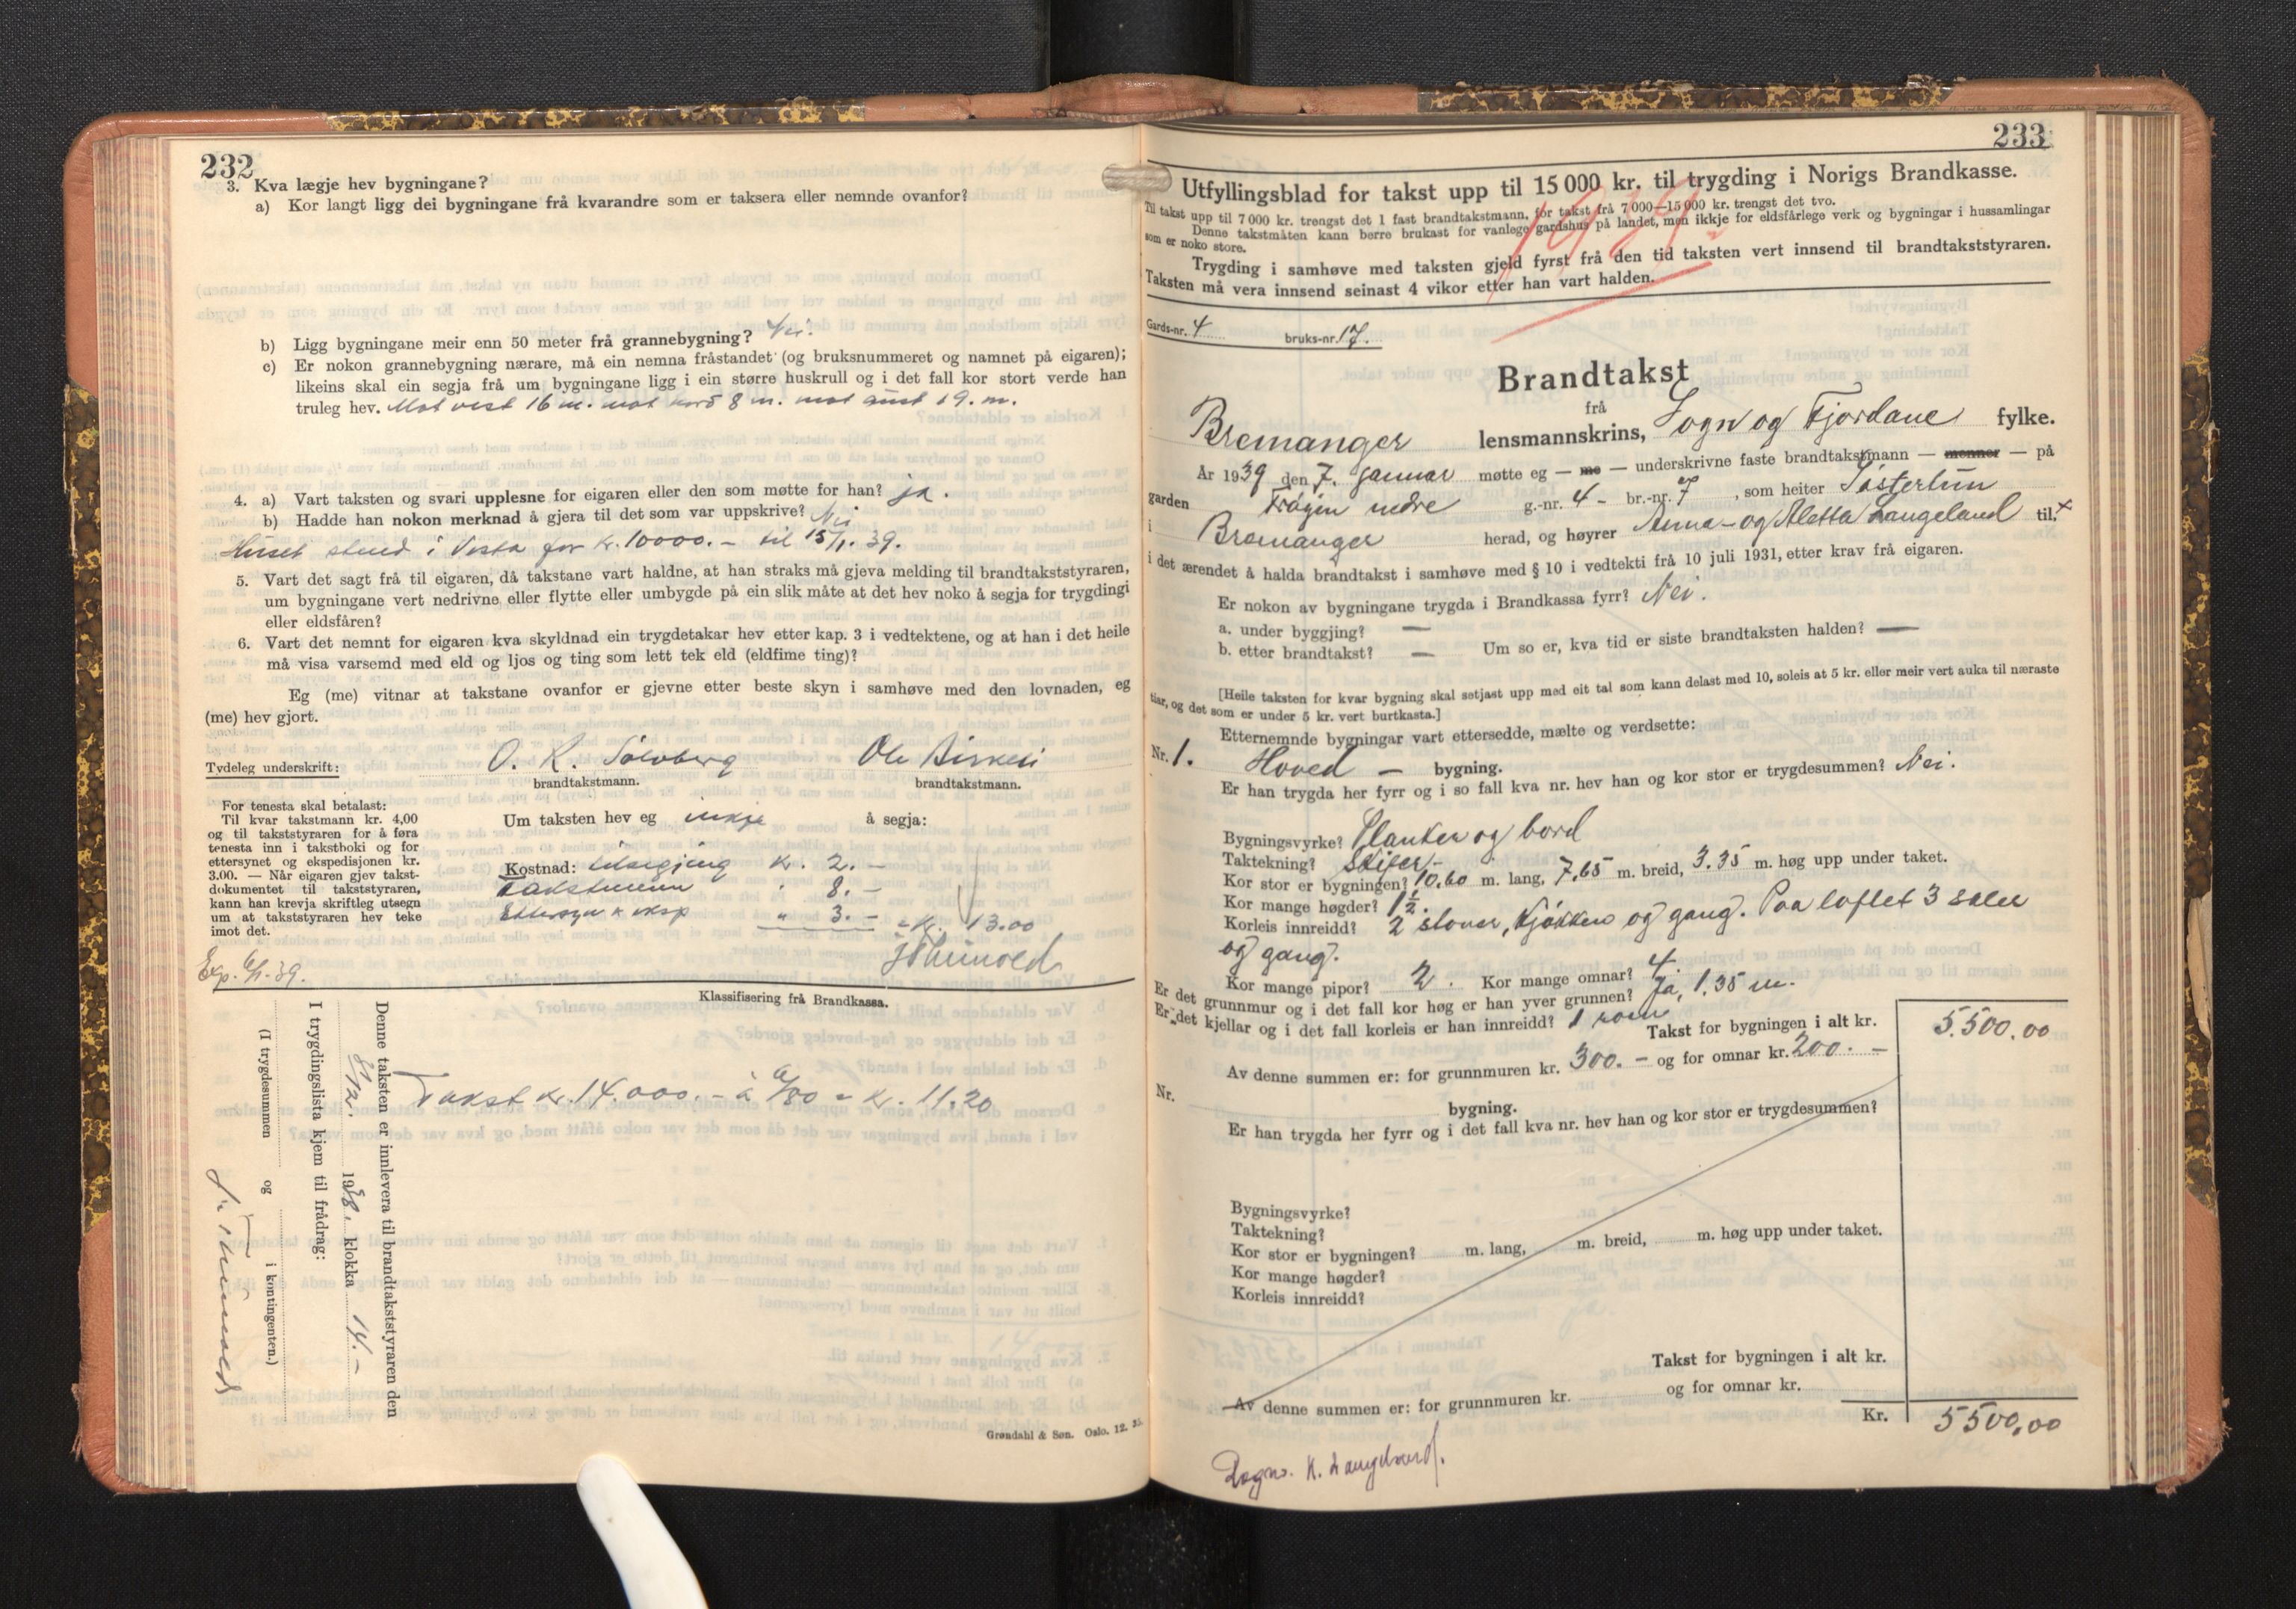 232
3. Kva lægje hev bygningane?
a) Kor langt ligg dei bygningane frå kvarandre som er taksera eller nemnde ovanfor?
b) Ligg bygningane meir enn 50 meter frå grannebygning? Nei.
c) Er nokon grannebygning nærare, må ein nemna fråstandet (og bruksnummeret og namnet på eigaren);
likeins skal ein segja frå um bygningane ligg i ein større huskrull og i det fall kor stort verde han
truleg hev. Mot vest 16 m. mot nord 8 m. mot aust 19. m.
4. a) Vart taksten og svari upplesne for eigaren eller den som møtte for han? ja.
b) Hadde han nokon merknad å gjera til det som var uppskrive? Nei
Huset stend i Vesta for kr. 10000.- til 15/1. 39.
5. Vart det sagt frå til eigaren, då takstane vart haldne, at han straks må gjeva melding til brandtakststyraren,
um bygningane vert nedrivne eller flytte eller umbygde på ein slik måte at det hev noko å segja for trygdingi
eller eldsfåren?
6. Vart det nemnt for eigaren kva skyldnad ein trygdetakar hev etter kap. 3 i vedtektene, og at han i det heile
må visa varsemd med eld og ljos og ting som lett tek eld (eldfime ting)?
Eg (me) vitnar at takstane ovanfor er gjevne etter beste skyn i samhøve med den lovnaden, eg
(me) hev gjort.
Tydeleg underskrift: O. R. Sølvberg Ole
brandtakstmann. brandtakstmann.
For tenesta skal betalast:
Til kvar takstmann kr. 4,00
og til takststyraren for å føra
tenesta inn i takstboki og for
ettersynet og ekspedisjonen kr.
3.00. — Når eigaren gjev takst-
dokumentet til takststyraren,
kann han krevja skriftleg utsegn
um at takststyraren hev teke
imot det.
Um taksten hev eg inkje å segja:
Kostnad: kr. 2.-
Takstmenn " 8.-
Ettersyn & eksp " 3.- = Kr. 13.00
Exp. 6/1-39.
Klassifisering frå Brandkassa.
Takst kr. 14.000.- à 6/80 = kr. 11.20
Denne taksten er innlevera til brandtakststyraren den
8/12. 1938. klokka 14.-
I trygdingslista kjem til frådrag:
(I trygdesummen og i kontingenten.)
Grøndahl & Søn. Oslo. 12.
233
Utfyllingsblad for takst upp til 15 000 kr. til trygding i Norigs Brandkasse.
1939
Til takst upp til 7 000 kr. trengst det 1 fast brandtakstmann, for takst frå 7 000—15 000 kr. trengst det tvo.
Denne takstmåten kann berre brukast for vanlege gardshus på landet, men ikkje for eldsfårlege verk og bygningar i hussamlingar
som er noko store.
Trygding i samhøve med taksten gjeld fyrst frå den tid taksten vert innsend til brandtakststyraren.
Taksten må vera innsend seinast 4 vikor etter han vart halden.
Gards-nr. 4 bruks-nr. 17.
Brandtakst
frå
Bremanger lensmannskrins, Sogn og Fjordane fylke.
År 1939 den 7. januar møtte eg — me — underskrivne faste brandtakstmann — menner — på
garden Frøyen nedre g.-nr. 4 - br.-nr. 7 , som heiter Søstertun
i Bremanger herad, og høyrer Anna- og Aletta Langeland til, x
i det ærendet å halda brandtakst i samhøve med § 10 i vedtekti frå 10 juli 1931, etter krav frå eigaren.
Er nokon av bygningane trygda i Brandkassa fyrr? Nei.
a. under byggjing? —
b. etter brandtakst? — Um so er, kva tid er siste brandtaksten halden? —
[Heile taksten for kvar bygning skal setjast upp med eit tal som kann delast med 10, soleis at 5 kr. eller meir vert auka til næraste
tiar, og det som er under 5 kr. vert burtkasta.]
Etternemnde bygningar vart ettersedde, mælte og verdsette:
Nr. 1. Hoved - bygning.
Er han trygda her fyrr og i so fall kva nr. hev han og kor stor er trygdesummen? Nei.
Bygningsvyrke? Planker og bord
Taktekning? Skifer -
Kor stor er bygningen? 10.60 m. lang, 7.65 m. breid, 3.35 m. høg upp under taket.
Kor mange høgder? 1½.
Korleis innreidd? 2 stover, kjøkken og gang. Paa loftet 3 soler
og gang.
Kor mange pipor? 2. Kor mange omnar? 4.
Er det grunnmur og i det fall kor høg er han yver grunnen? Ja, 1.35 m.
Er det kjellar og i det fall korleis er han innreidd? 1 rom
Takst for bygningen i alt kr. 5.500.00
Av denne summen er: for grunnmuren kr. 300.- og for omnar kr. 200.-
Nr. bygning.
Er han trygda her fyrr og i det fall kva nr. hev han og kor stor er trygdesummen?
Bygningsvyrke?
Taktekning?
Kor stor er bygningen? m. lang, m. breid, m. høg upp under taket.
Kor mange høgder?
Korleis innreidd?
Takst for bygningen i alt kr.
Av denne summen er: for grunnmuren kr. og for omnar kr.
Kr. 5500,00
K. Langeland.